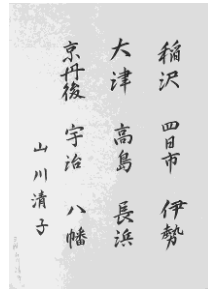 稲沢 四日市 伊勢
大津 高島 長浜
京丹後 宇治 八幡
山川清子